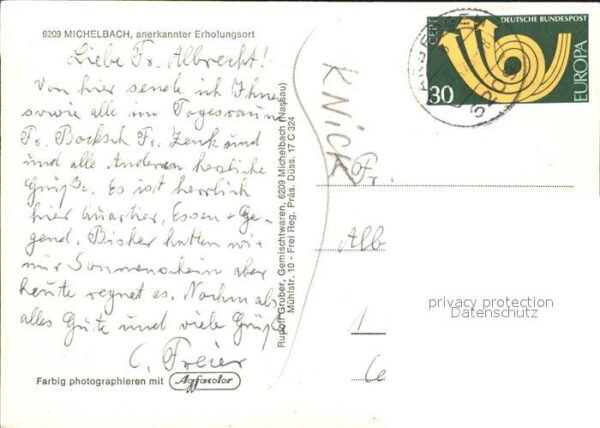 6209 MICHELBACH, anerkannter Erholungsort
Liebe Fr. Albrecht!
Von hier sende ich Ihnen
sowie alle im Tagesraume
Fr. Fr. Zenk und
und alle Anderen herzliche
Grüße. Es ist herrlich
hier Quartier, Essen + Ge-
gend. Bisher hatten wir
nur Sonnenschein aber
heute regnet es. Nochmals
alles Gute und viele Grüße
C. Freier
Farbig photographieren mit Agfacolor
Rudolf Gruber, Gemischtwaren, 6209 Michelbach (Nassau)
Mühlstr. 10 - Frei Reg. Präs. Düss. 17 C 324
KNICK
CEPT
DEUTSCHE BUNDESPOST
EUROPA
30
Fr.
Alb
1
privacy protection
Datenschutz